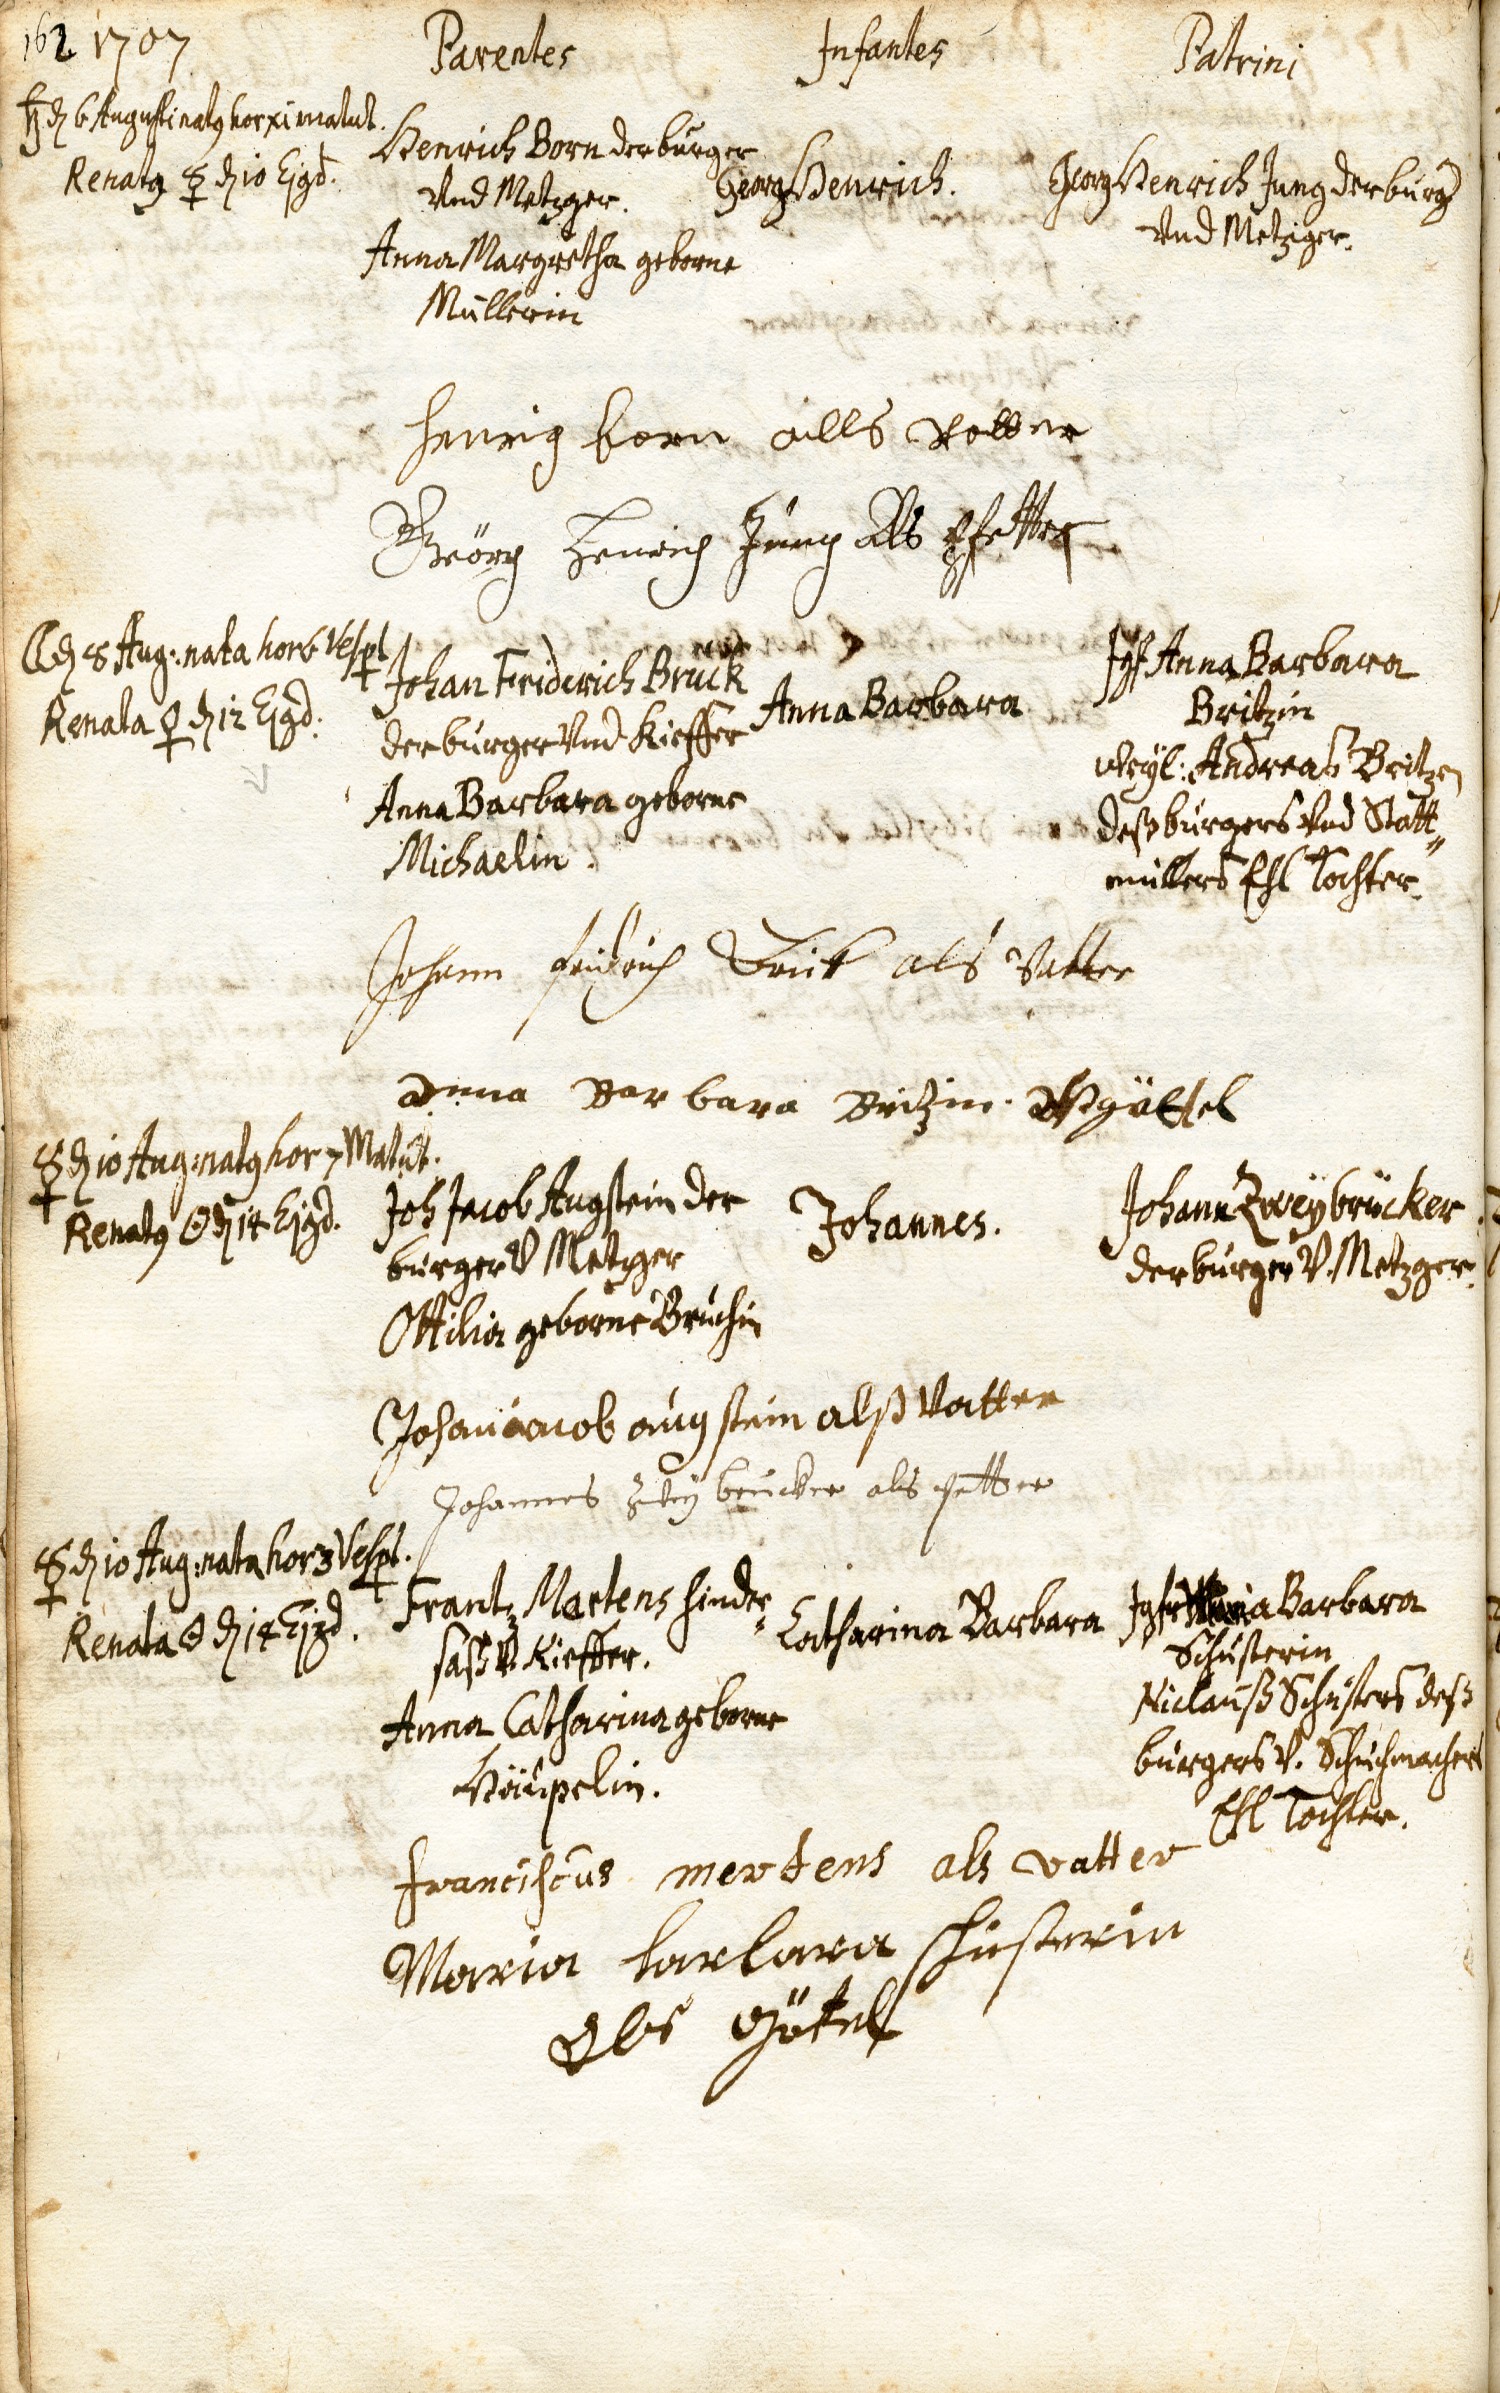 162 1707 Parentes Infantes Patrini
♄ d 6 Augusti natꝰ hor xi matut.
Renatꝰ ☿ d 10 Ejsd.
Henrich Born der burger
Vnd Metzger.
Anna Margretha geborne
Müllerin
Georg Henrich.
Georg Henrich Jung der burgr
Vnd Metziger.
henrig born alls Vatter
Georg Henrich Jung Als Pfetter
☾ d 8 Aug: nata hor 6 Vesp̄t
Renata ♀ d 12 Ejsd:
Johan Friderich Bruck
der burger Vnd Kieffer
Anna Barbara geborne
Michaelin.
Anna Barbara
Jgf Anna Barbara
Britzin
Weyl: Andreas Britzen
deß burgers Vnd Statt„
müllers Ehl Tochter.
Johann fridrich Bruk als Vatter
anna Barbara Britzin als götel
☿ d 10 Aug: natꝰ hor 7 Matut.
Renatꝰ ☉ d 14 Ejsd.
Joh Jacob Augstein der
burger V Metzger
Ottilia geborne Bruchin
Johannes.
Johann Zweybrücker
der burger V. Metzger.
Johan Jacob augstein alß Vatter
Johannes Zweybrucker als petter
☿ d 10 Aug: nata hor 3 Vesp̄t.
Renata ☉ d 14 Ejsd.
Frantz Martens hinder„
saß V. Kieffer.
Anna Catharina geborne
Catharina Barbara
Jgfr Maria Barbara
Schusterin
Niclauß Schusters deß
burgers V. Schuhmachers
Ehl Tochter.
franciscus mertens als vatter
Maria barbara schusterin
Als götel